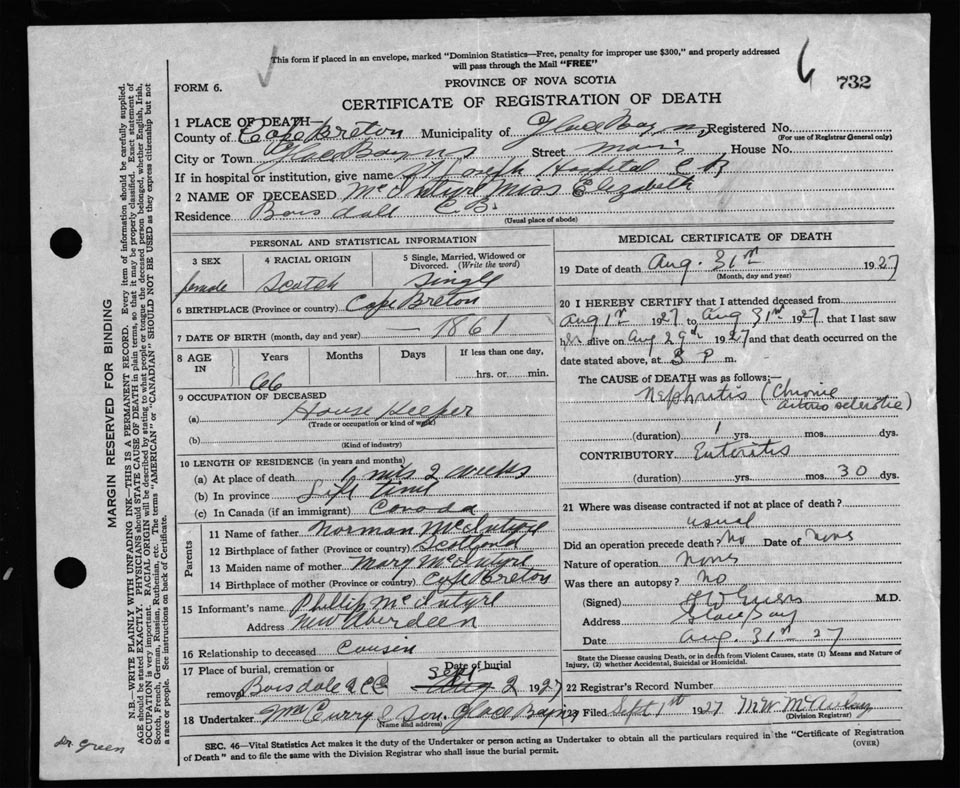 This form if placed in an envelope, marked "Dominion Statistics—Free, penalty for improper use $300," and properly addressed
will pass through the Mail "FREE"
FORM 6.
PROVINCE OF NOVA SCOTIA
732
CERTIFICATE OF REGISTRATION OF DEATH
1 PLACE OF DEATH—
County of Cape Breton Municipality of Glace Bay NS Registered No.
(For use of Registrar General only)
City or Town Glace Bay NS Street Main House No.
If in hospital or institution, give name St Joseph Hospital C B
2 NAME OF DECEASED McIntyre Miss Elizabeth
Residence Boisdale C.B.
(Usual place of abode)
PERSONAL AND STATISTICAL INFORMATION
3 SEX 4 RACIAL ORIGIN 5 Single, Married, Widowed or Divorced. (Write the word)
female Scotch Single
6 BIRTHPLACE (Province or country) Cape Breton
7 DATE OF BIRTH (month, day and year) — 1861
8 AGE IN Years Months Days If less than one day,
66 hrs. or min.
9 OCCUPATION OF DECEASED
(a) House Keeper
(Trade or occupation or kind of work)
(b)
(Kind of industry)
10 LENGTH OF RESIDENCE (in years and months)
(a) At place of death mts 2 weeks
(b) In province Life time
(c) In Canada (if an immigrant) Canada
Parents
11 Name of father Norman McIntyre
12 Birthplace of father (Province or country) Scotland
13 Maiden name of mother Mary McIntyre
14 Birthplace of mother (Province or country) Cape Breton
15 Informant's name Phillip McIntyre
Address New Aberdeen
16 Relationship to deceased Cousin
17 Place of burial, cremation or removal Boisdale C B Date of burial Sept Aug 2 1927
18 Undertaker McCurry & Son. Glace Bay NS
(Name and address)
MEDICAL CERTIFICATE OF DEATH
19 Date of death Aug. 31st 1927
(Month, day and year)
20 I HEREBY CERTIFY that I attended deceased from
Aug 1st 1927 to Aug 31st 1927, that I last saw
her alive on Aug 29th 1927 and that death occurred on the
date stated above, at 8 P m.
The CAUSE of DEATH was as follows:—
Nephritis (Chronic
arterio sclerotic)
(duration) 1 yrs. mos. dys.
CONTRIBUTORY Enteritis
(duration) yrs. mos. 30 dys.
21 Where was disease contracted if not at place of death?
usual
Did an operation precede death? No Date of None
Nature of operation None
Was there an autopsy? No
(Signed) M.D.
Address Glace Bay
Date Aug. 31st 27
State the Disease causing Death, or in death from Violent Causes, state (1) Means and Nature of
Injury, (2) whether Accidental, Suicidal or Homicidal.
22 Registrar's Record Number
23 Filed Sept 1st 1927 M W McAulay
(Division Registrar)
SEC. 46—Vital Statistics Act makes it the duty of the Undertaker or person acting as Undertaker to obtain all the particulars required in the "Certificate of Registration
of Death" and to file the same with the Division Registrar who shall issue the burial permit.
(OVER)
MARGIN RESERVED FOR BINDING
N.B.—WRITE PLAINLY WITH UNFADING INK—THIS IS A PERMANENT RECORD. Every item of information should be carefully supplied.
AGE should be stated EXACTLY. PHYSICIANS should STATE CAUSE OF DEATH in plain terms, so that it may be properly classified. Exact statement of
OCCUPATION is very important. RACIAL ORIGIN will be described by stating to what people or tongue the deceased person belonged, whether English, Irish,
Scotch, French, German, Russian, Ruthenian, etc. The terms "AMERICAN" or "CANADIAN" SHOULD NOT BE USED as they express citizenship but not
a race or people. See instructions on back of Certificate.
Dr. Green